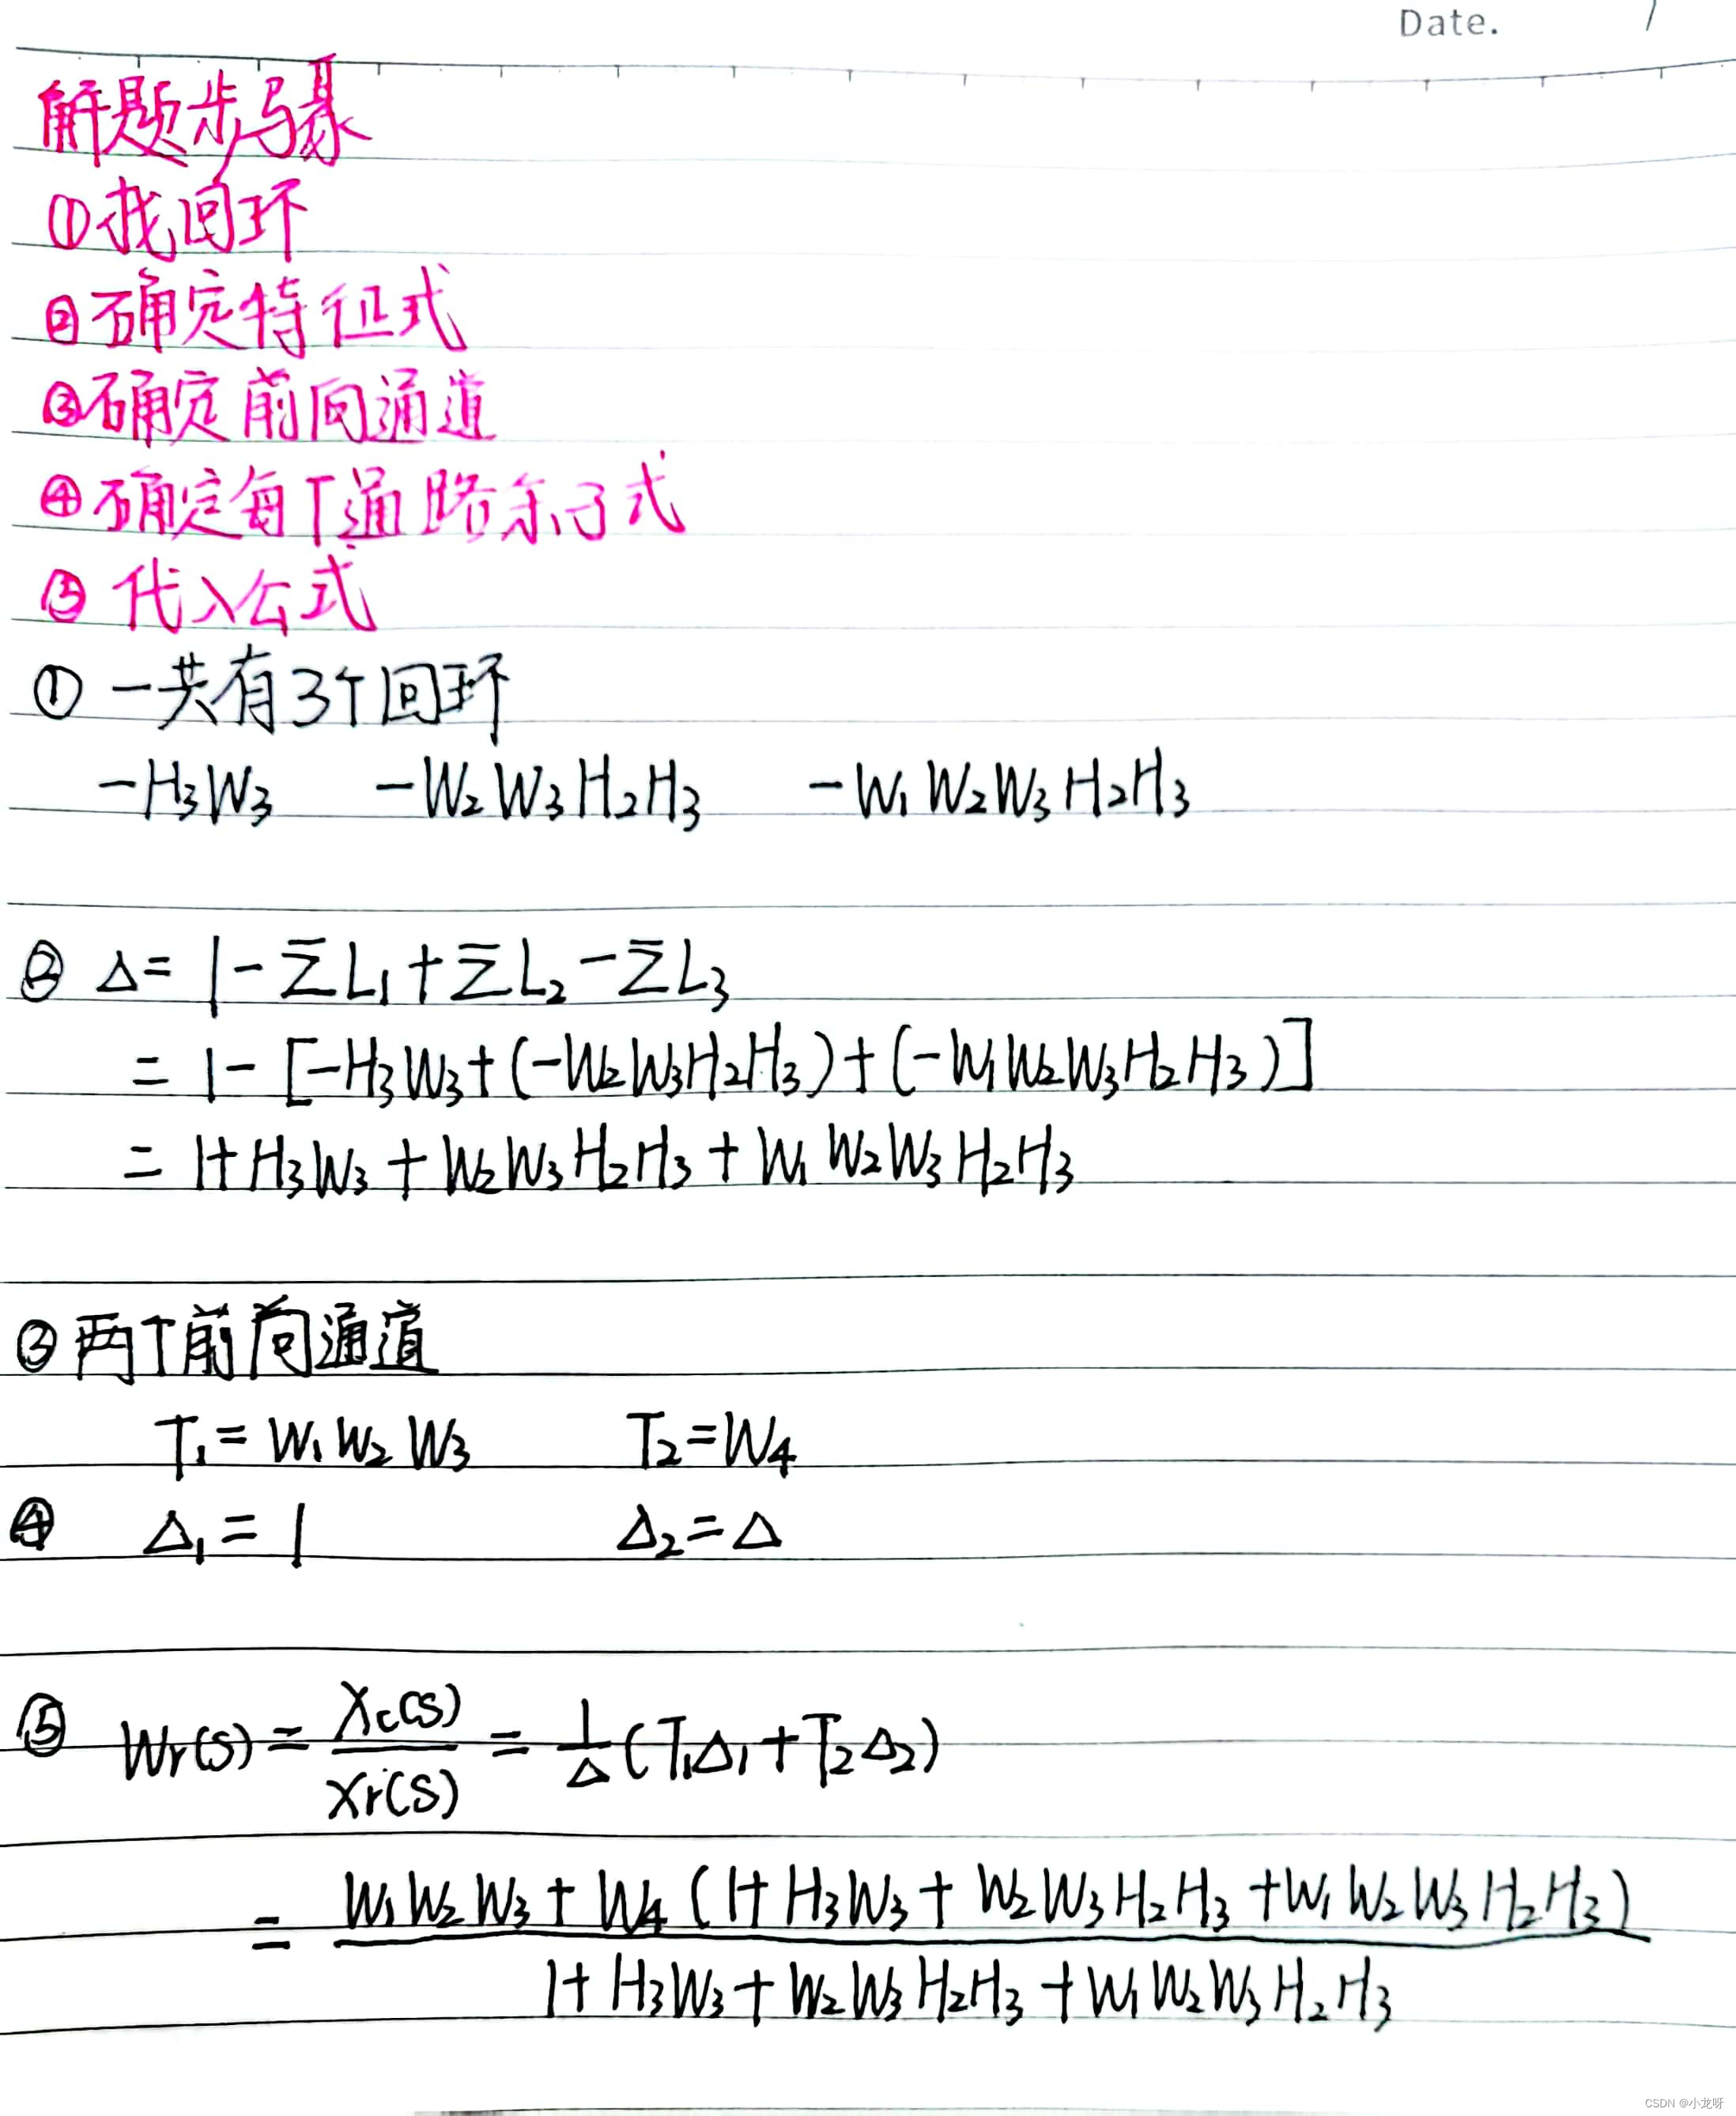 Date. /
解题步骤
①找回环
②确定特征式
③确定前向通道
④确定每个通路余子式
⑤代入公式
① 一共有3个回环
-H₃W₃ -W₂W₃H₂H₃ -W₁W₂W₃H₂H₃
② Δ= 1-ΣL₁+ΣL₂-ΣL₃
= 1-[-H₃W₃+(-W₂W₃H₂H₃)+(-W₁W₂W₃H₂H₃)]
= 1+H₃W₃+W₂W₃H₂H₃+W₁W₂W₃H₂H₃
③两个前向通道
T₁=W₁W₂W₃ T₂=W₄
④ Δ₁=1 Δ₂=Δ
⑤ Wr(s)=Xc(s)/Xr(s)=1/Δ(T₁Δ₁+T₂Δ₂)
= W₁W₂W₃+W₄(1+H₃W₃+W₂W₃H₂H₃+W₁W₂W₃H₂H₃)
1+H₃W₃+W₂W₃H₂H₃+W₁W₂W₃H₂H₃
CSDN @小龙呀